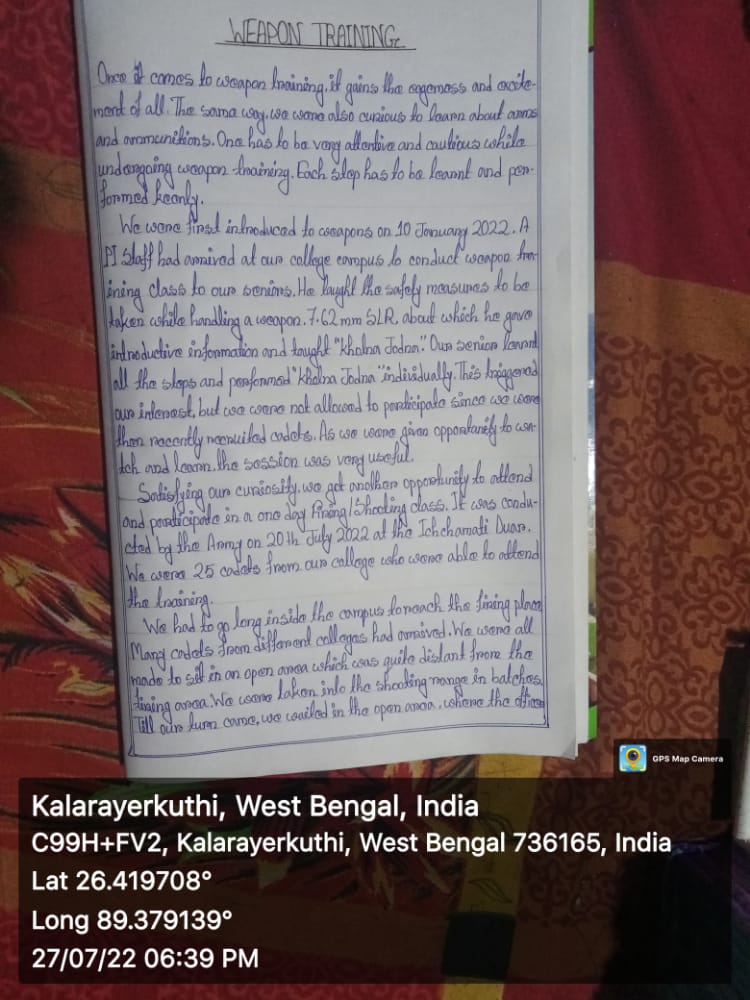 WEAPON TRAINING
Once it comes to weapon training, it gains the eagerness and excite-
ment of all. The same way, we were also curious to learn about arms
and ammunitions. One has to be very attentive and cautious while
undergoing weapon training. Each step has to be learnt and per-
formed keenly.
We were first introduced to weapons on 10 January 2022. A
PI Staff had arrived at our college campus to conduct weapon tra-
ining class to our seniors. He taught the safety measures to be
taken while handling a weapon. 7.62 mm SLR, about which he gave
introductive information and taught "Kholna Jodna." Our senior learnt
all the steps and performed "Kholna Jodna" individually. This triggered
our interest, but we were not allowed to participate since we were
then recently recruited cadets. As we were given opportunity to wa-
tch and learn, the session was very useful.
Satisfying our curiosity, we got another opportunity to attend
and participate in a one day Firing/Shooting class. It was condu-
cted by the Army on 20th July 2022 at the Ichchamati Duar.
We were 25 cadets from our college who were able to attend
the training.
We had to go long inside the campus to reach the firing place
Many cadets from different colleges had arrived. We were all
made to sit in an open area which was quite distant from the
firing area. We were taken into the shooting range in batches.
Till our turn came, we waited in the open area, where the officer
GPS Map Camera
Kalarayerkuthi, West Bengal, India
C99H+FV2, Kalarayerkuthi, West Bengal 736165, India
Lat 26.419708°
Long 89.379139°
27/07/22 06:39 PM